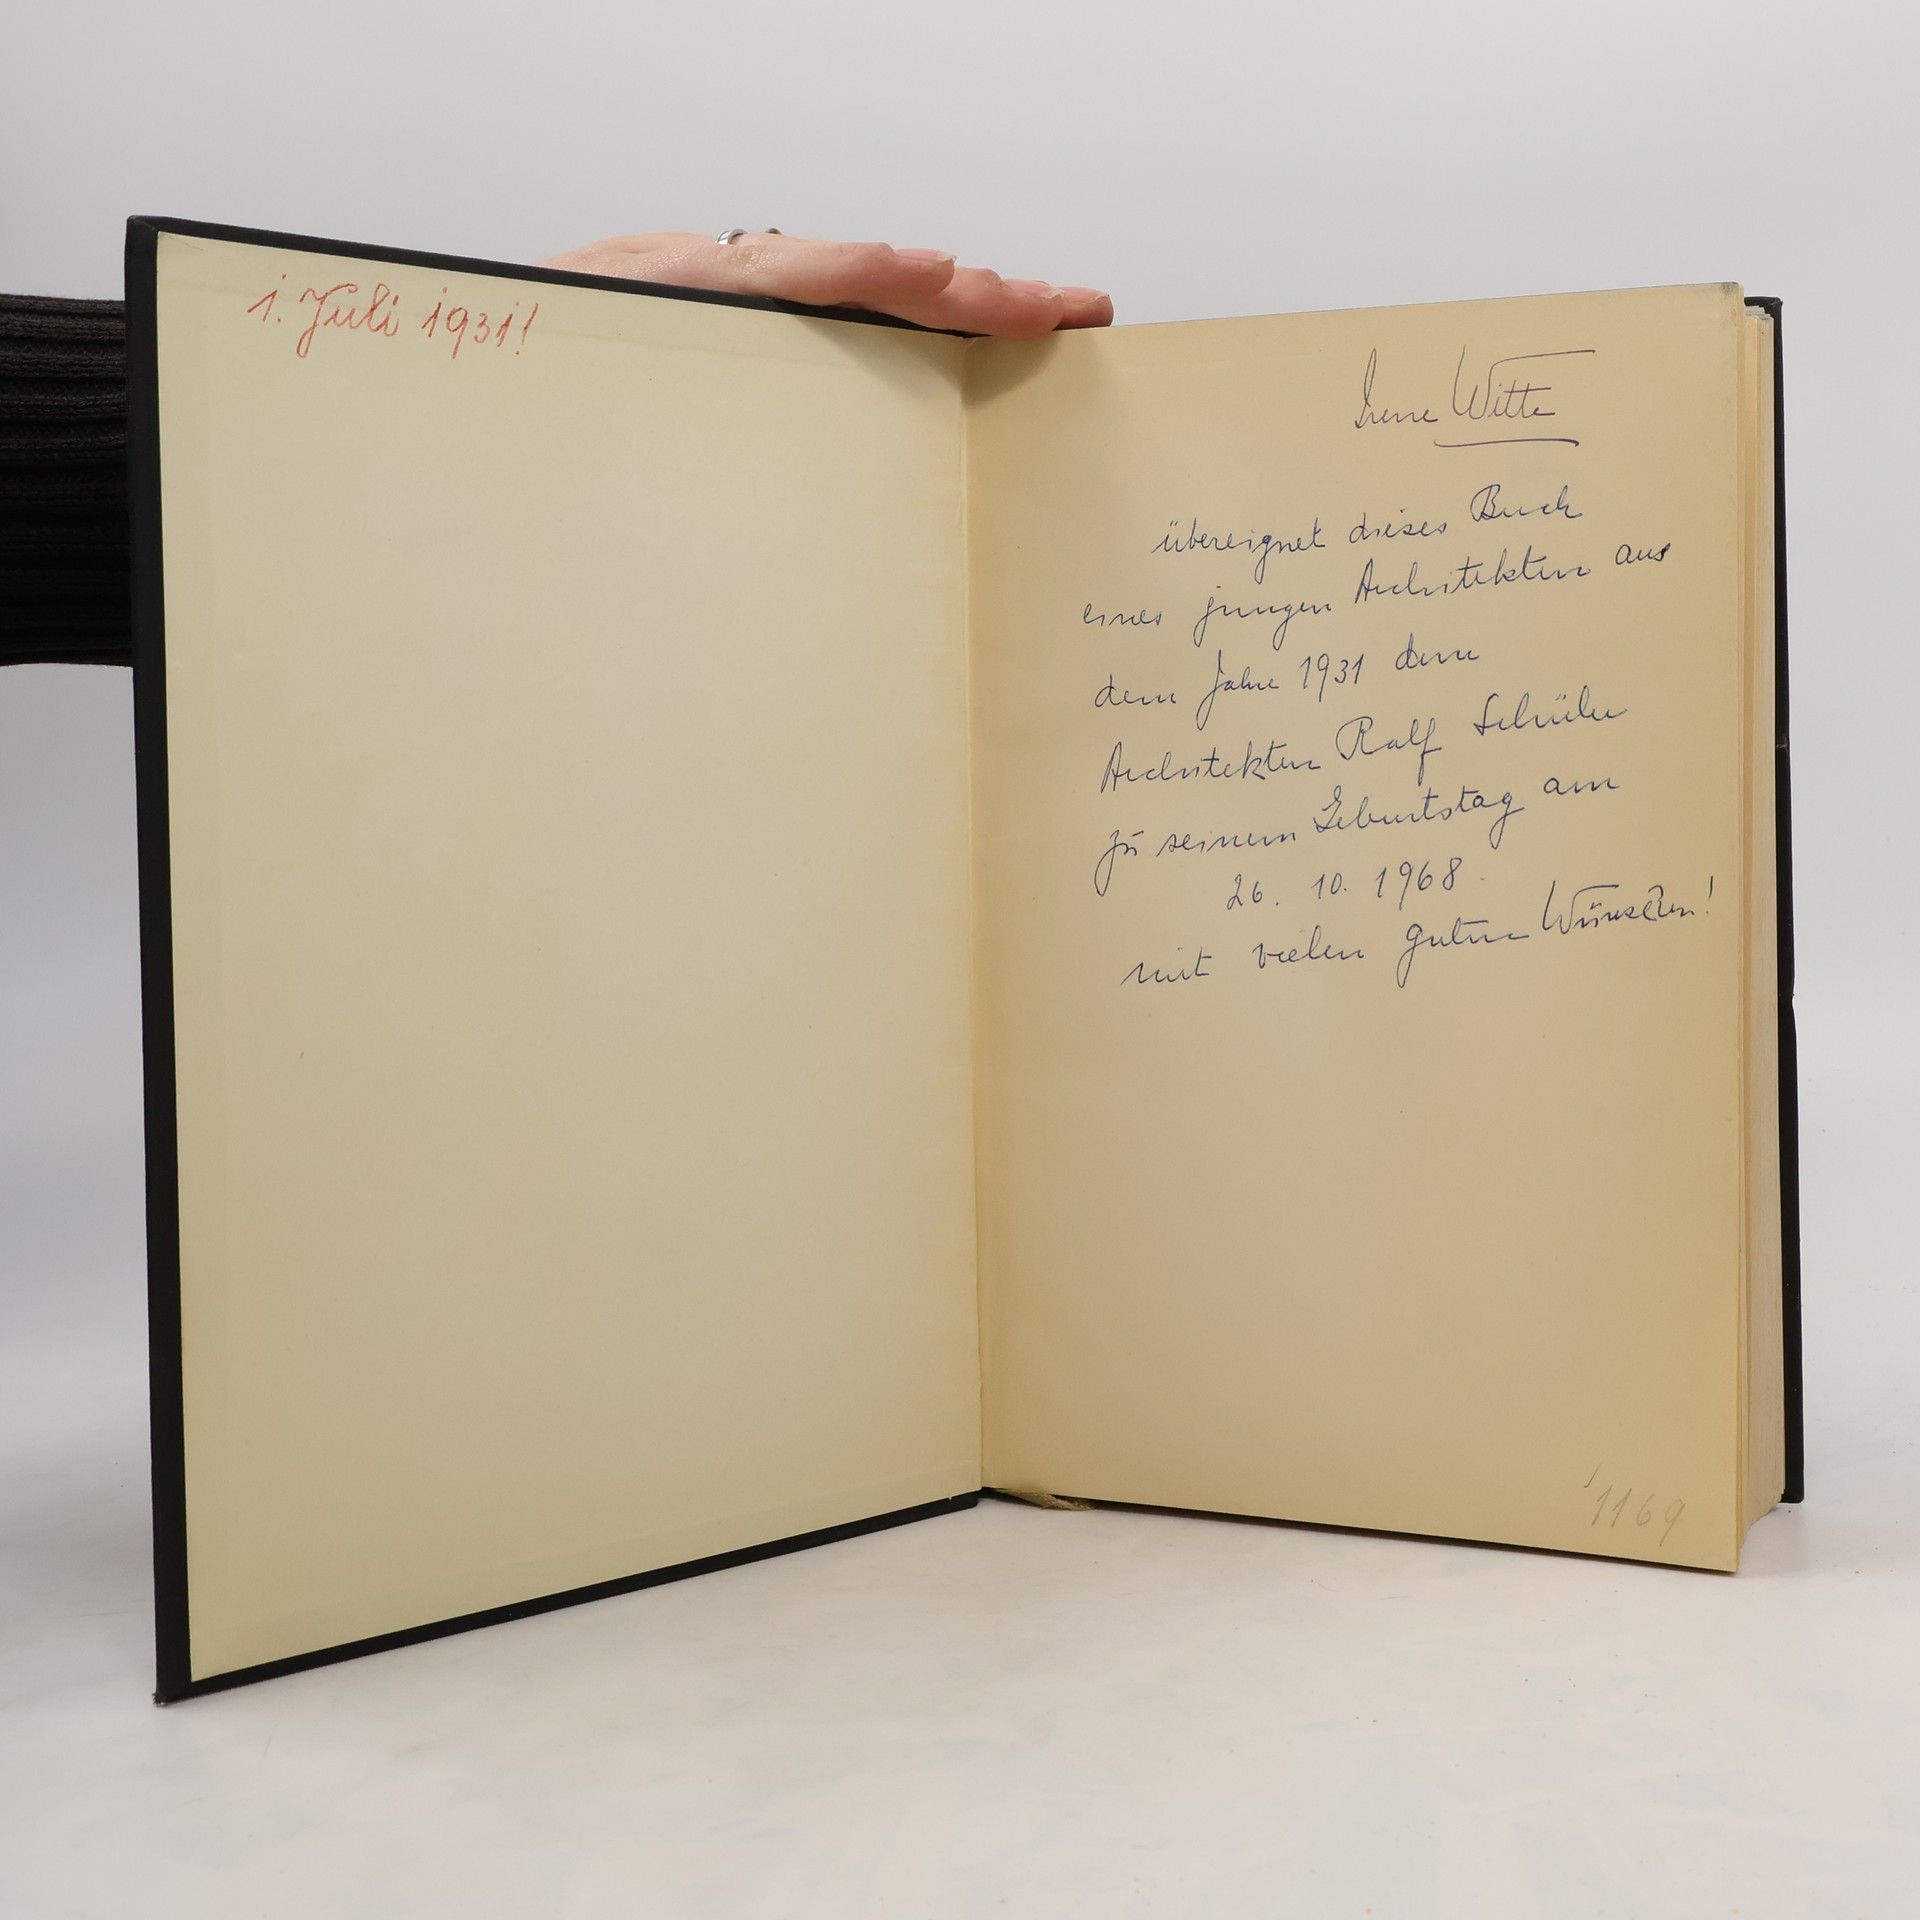 1. Juli 1931!
Irene Witte
übereignet dieses Buch
eines jungen Architekten aus
dem Jahre 1931 dem
Architekten Ralf Schüler
zu seinem Geburtstag am
26. 10. 1968
mit vielen guten Wünschen!
1169